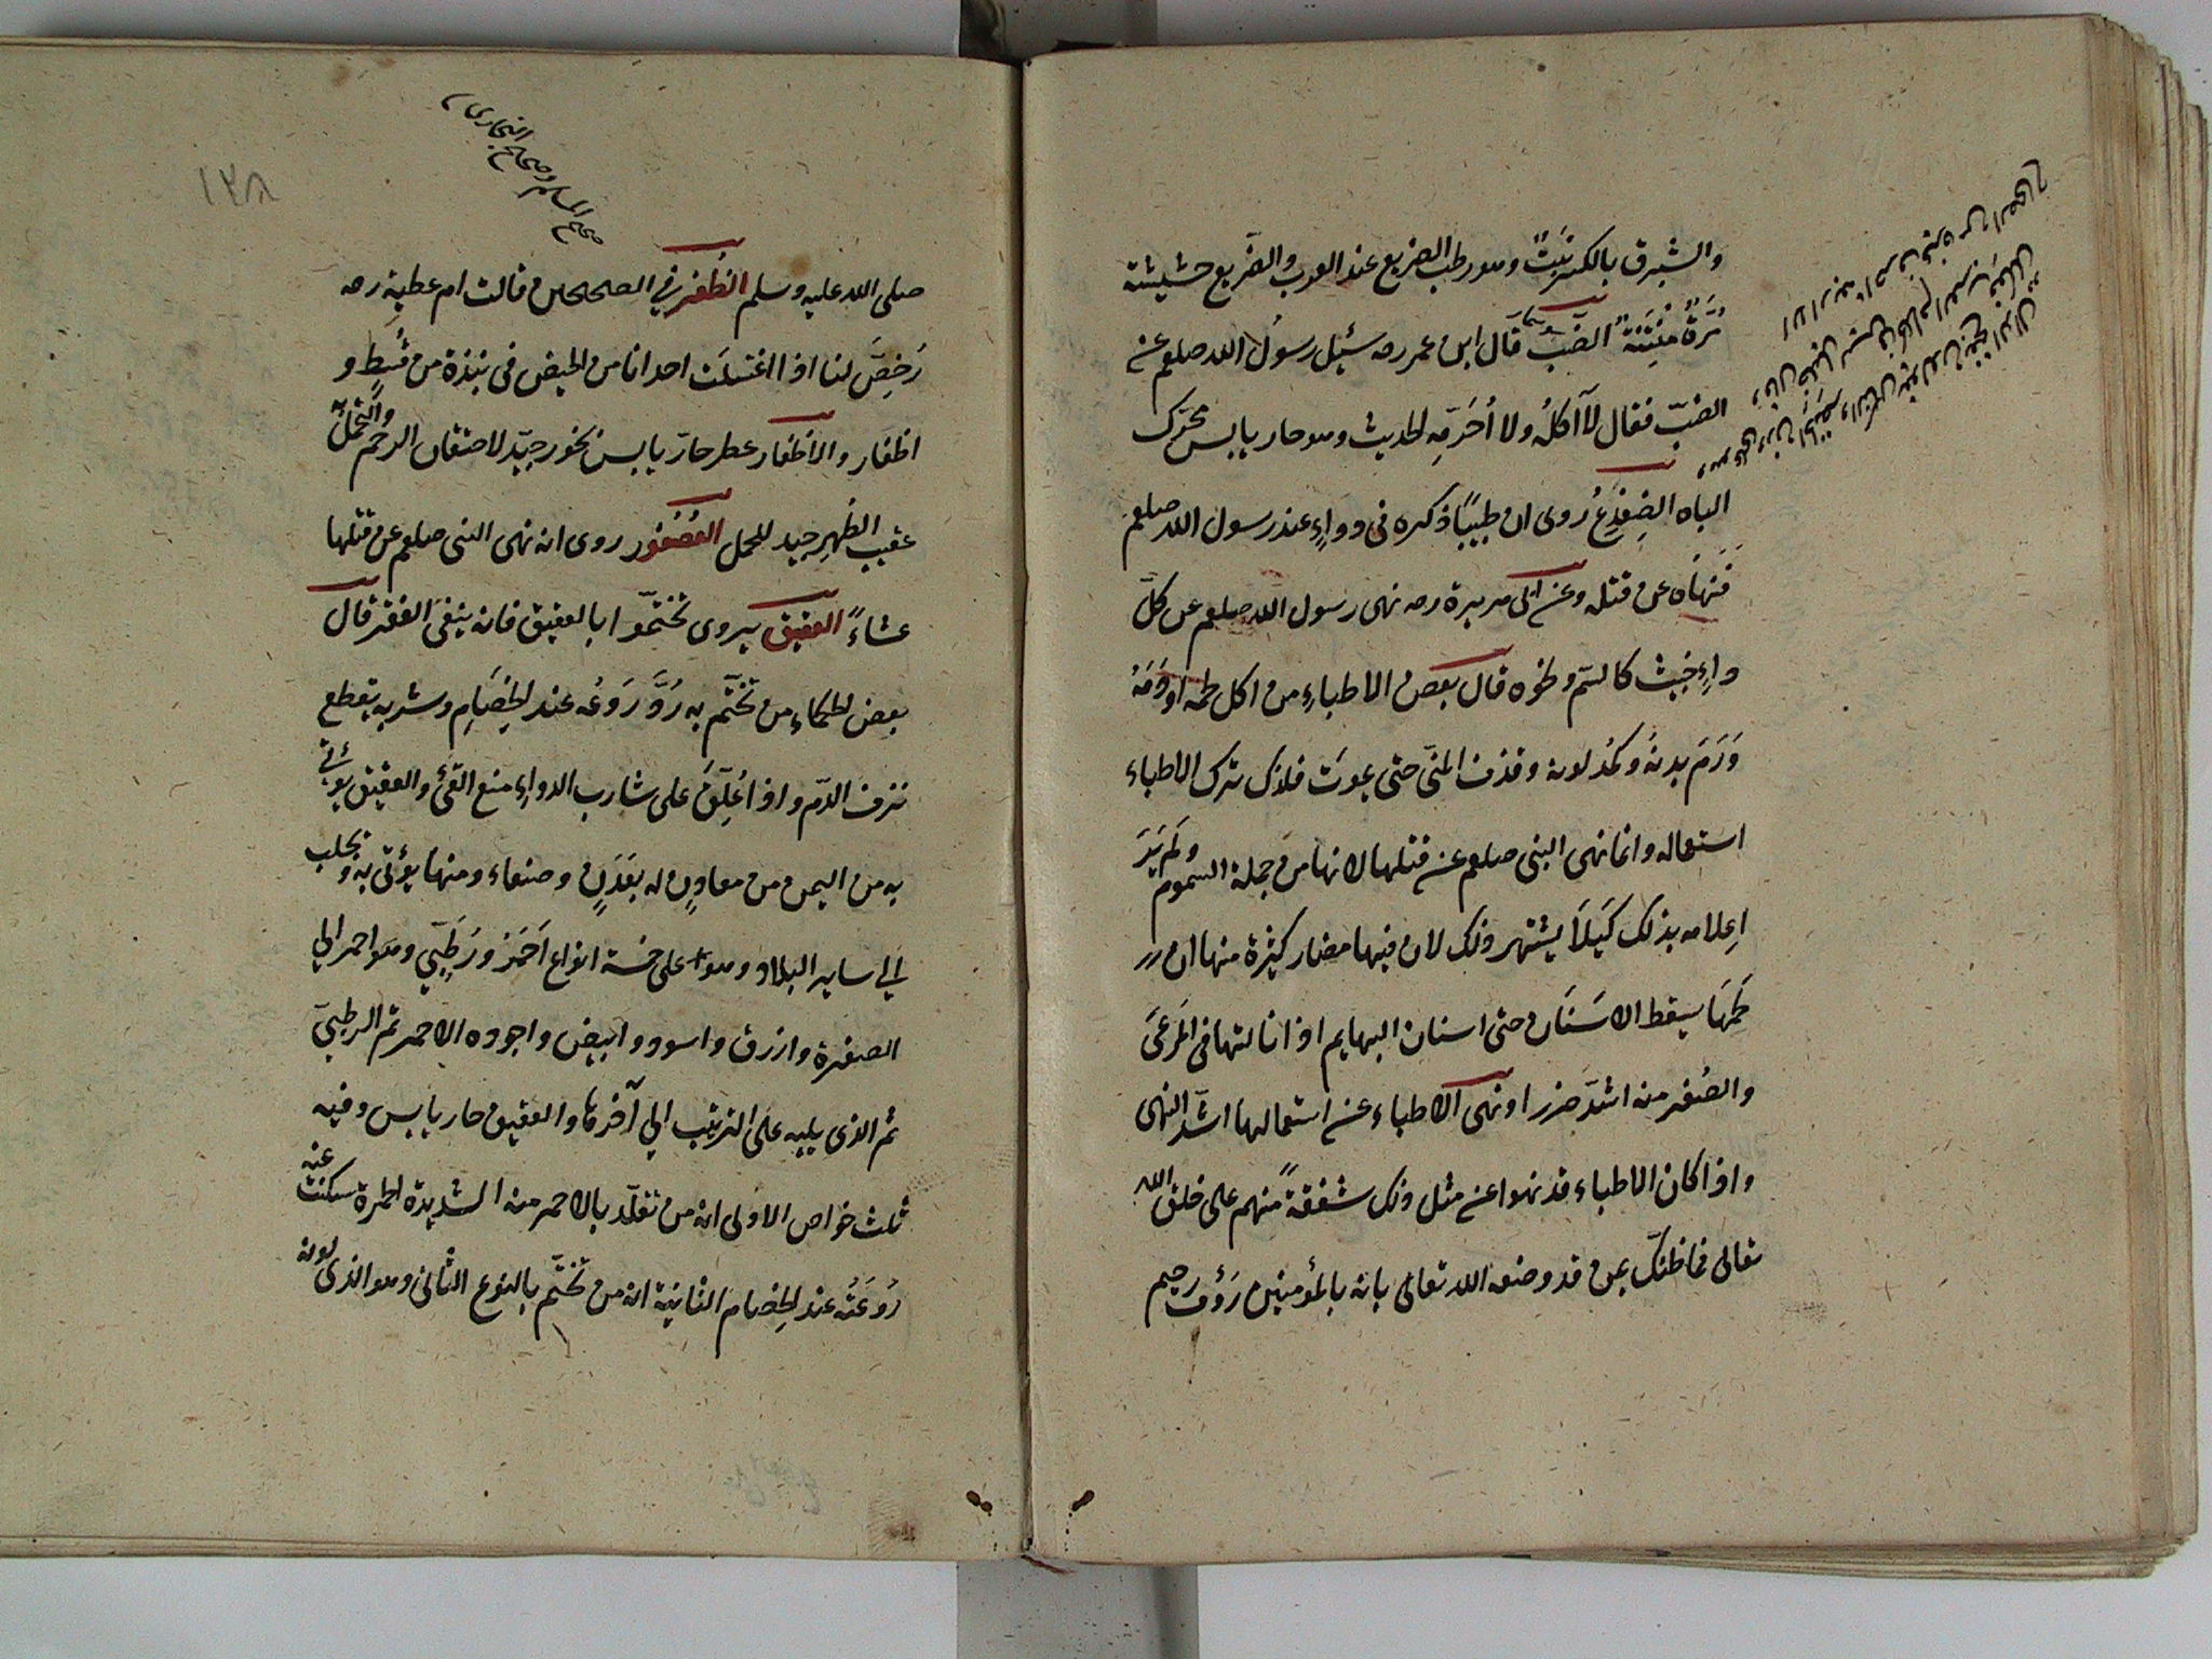 والشبرق بالكسر نَبتٌ وهو رطب الضريع عند العرب والضَّريع حشيشة
مُرَّةٌ مُنْتِنَةٌ الضَبّ قال ابن عمر رضه سئِل رسولُ الله صلعم عن
الضبّ فقال لا آكلُه ولا اُحَرّمِه الحديث وهو حار يابس يحرّك
الباه الضِفدِعُ رُوى ان طبيبًا ذكره فى دواءٍ عند رسول الله صلعم
فَنهاَه عن قتله وعن ابى هريرة رضه نهى رسول الله صلعم عن كلّ
داءٍ خبيث كالسّم ونحوه قال بعض الاطباءِ من اكل لحمه او دَمَهُ
وَرَمَ بدنهُ وكمُد لونه وقذف المنىّ حتى يموتَ فلذلك ترك الاطباء
استعماله وانما نهى النبى صلعم عن قتلها لانها من جملة السموم ولَم يَرَ
اِعلامه بذلك كَيلاَ يشتهر ذلك لان فيها مضار كثيرة منها ان
لحمَهَا يسقط الاَسنَان حتى اسنان البهايم اذا نالتها فى المَرعَى
والصُفر منه اشدّ ضررا ونهى الاطباء عن استعمالها اشدّ النهى
واذا كان الاطباء قد نهوا عن مثل ذلك شفقةً منهم على خلق الله
تعالى فما ظنّك بمن قد وصفه الله تعالى بانه بالمؤمنين رَؤُف رحيم
صحيح المسلم وصحيح البخارى
١٢٨
صلى الله عليه وسلم الظُفر في الصحيحين قالت ام عطية رضه
رُخِصَّ لنا اذا اغتسلَت احدانا من الحيض فى نبذة من قُسطٍ و
اظفار والاظفار عطر حارّ يابس بخور جيّد لاختقان الرحم والتحمّل به
عقيب الطُهر جيد للحمل العُصْفور روى انه نهى النبى صلعم عن قتلها
عشاءً العقيق يروى تختمّوا بالعقيق فانه ينفى الفقر قال
بعض الحكماء من تختّم به رُدَّ رَوعُه عند الخِصَامِ وشربه يقطع
نزف الدّم واذا عُلِّق على شارب الدواء منع القئ والعقيق يؤتى
به من اليمن من معادنٍ له بعَدَنٍ وصنعاء ومنها يؤتى به ويجلب
الي ساير البلاد وهو على خمسة انواع اَحمَر ورُطَبِيّ وهو احمر الي
الصفرة وازرق واسود وابيض واجوده الاحمر ثم الرطبىّ
ثم الذى يليه على الترتيب الي آخرها والعقيق حار يابس وفيه
ثلث خواص الاولى انه من تقلّد بالاحمر منه الشديدة الحمرة سكنت عنه
رَوعَتُه عند الخِصام الثانية انه من تختّم بالنوع الثانى وهو الذى لونه